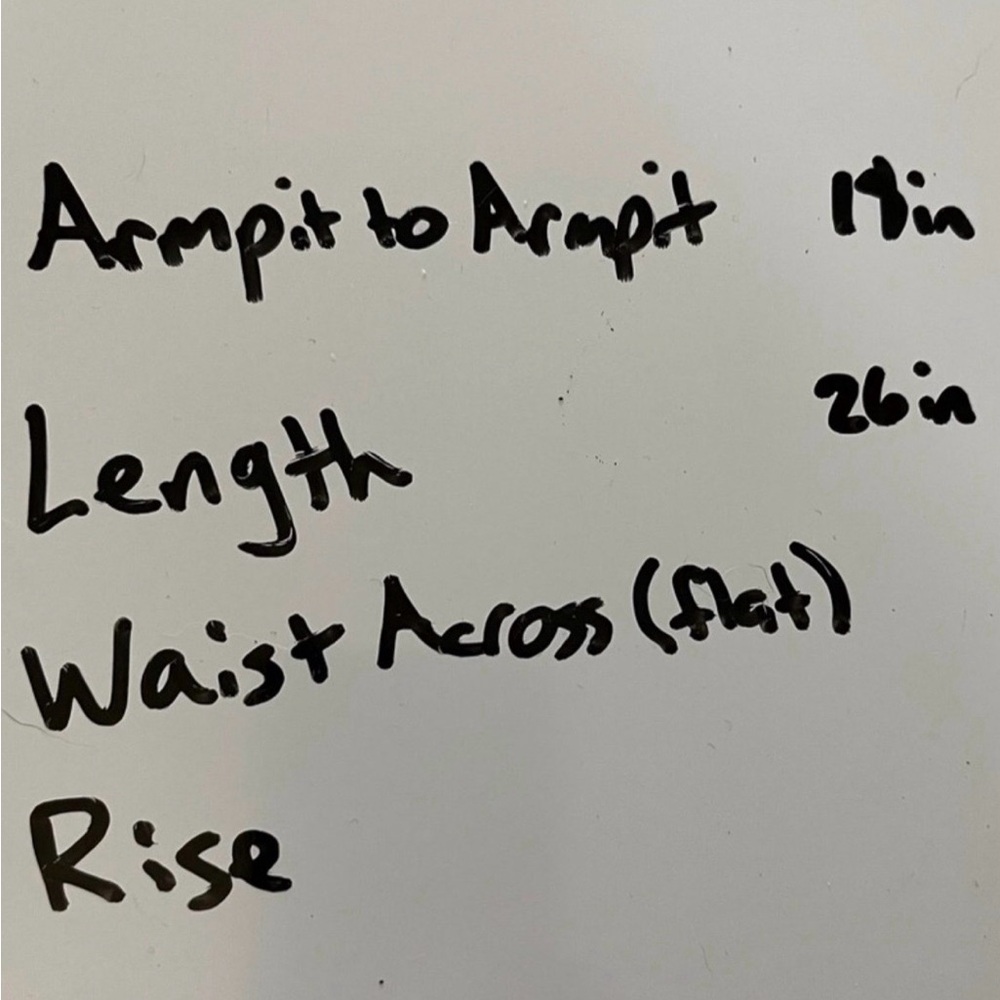 Armpit to Armpit 18in
Length 26in
Waist Across (flat)
Rise